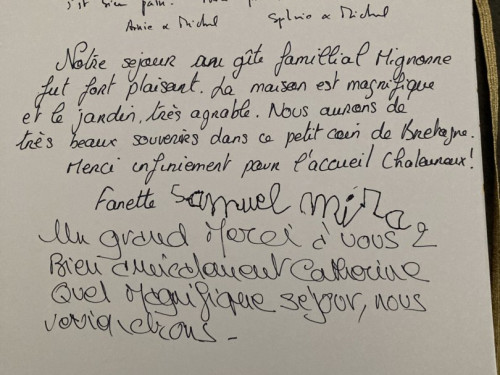 s'est bien
Annie & Michel Sylvie & Michel
Notre sejour au gîte famillial Mignonne
fut fort plaisant. La maison est magnifique
et le jardin, très agrable. Nous aurons de
très beaux souvenirs dans ce petit coin de Bretagne.
Merci infiniement pour l'accueil Chaleureux!
Fanette Samuel Mila
Un grand Merci à vous 2
Bien amicalement Catherine
Quel Magnifique sejour, nous
reviendrons.